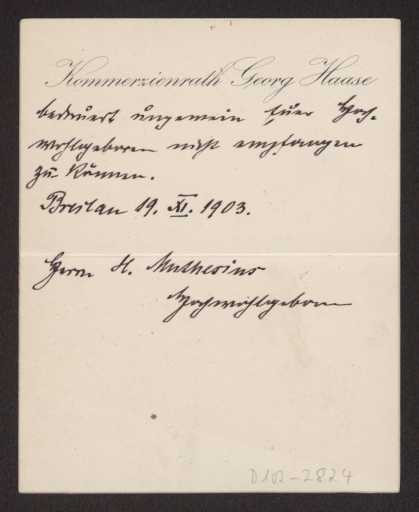 Kommerzienrath Georg Haase
bedauert ungemein Euer Hoch-
wohlgeboren nicht empfangen
zu können.
Breslau 19. XI. 1903.
Herrn H. Muthesius
Hochwohlgeboren
D102-2824